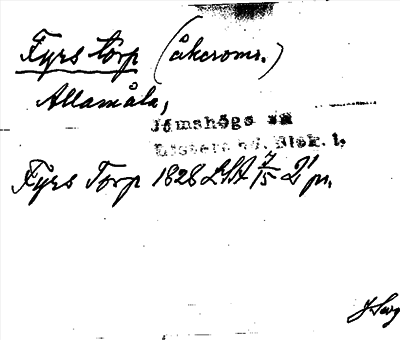 Fyrs torp (åkeromr.)
Allamåla,
Jämshögs sn
Listers hd. Blek. l.
Fyrs Torp 1828 LSA 7/15 21 pr.